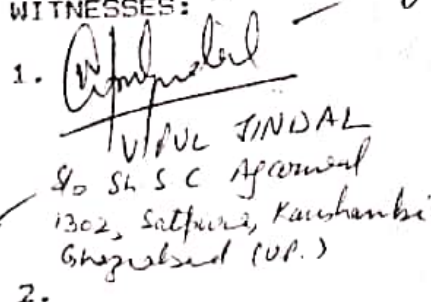 WITNESSES:
1.
VIPUL JINDAL
S/o Sh S C Agarwal
1302, Satpura, Kaushambi
Ghaziabad (UP.)
2.